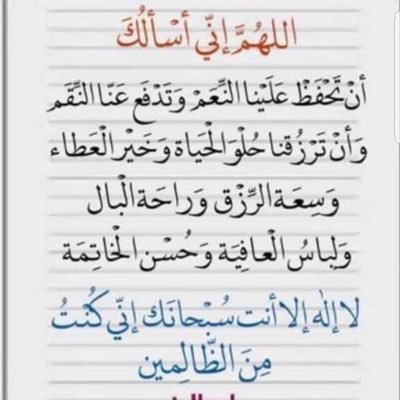 اللهُمَّ إنّي أسْألُكَ
أنْ تَحْفَظْ عَلَيْنا النِّعَمْ وَتَدْفَع عَنّا النِّقَم
وَأنْ تَرْزُقنا حُلْوَ الْحَيَاة وَخَيْر الْعَطاء
وَسِعَة الرِّزْق وَرَاحَة الْبال
وَلِباسُ الْعافِيَة وَحُسْن الْخاتِمَة
لا إلٰه إلا أنت سُبْحانَك إنّي كُنْتُ
مِنَ الظَّالِمين